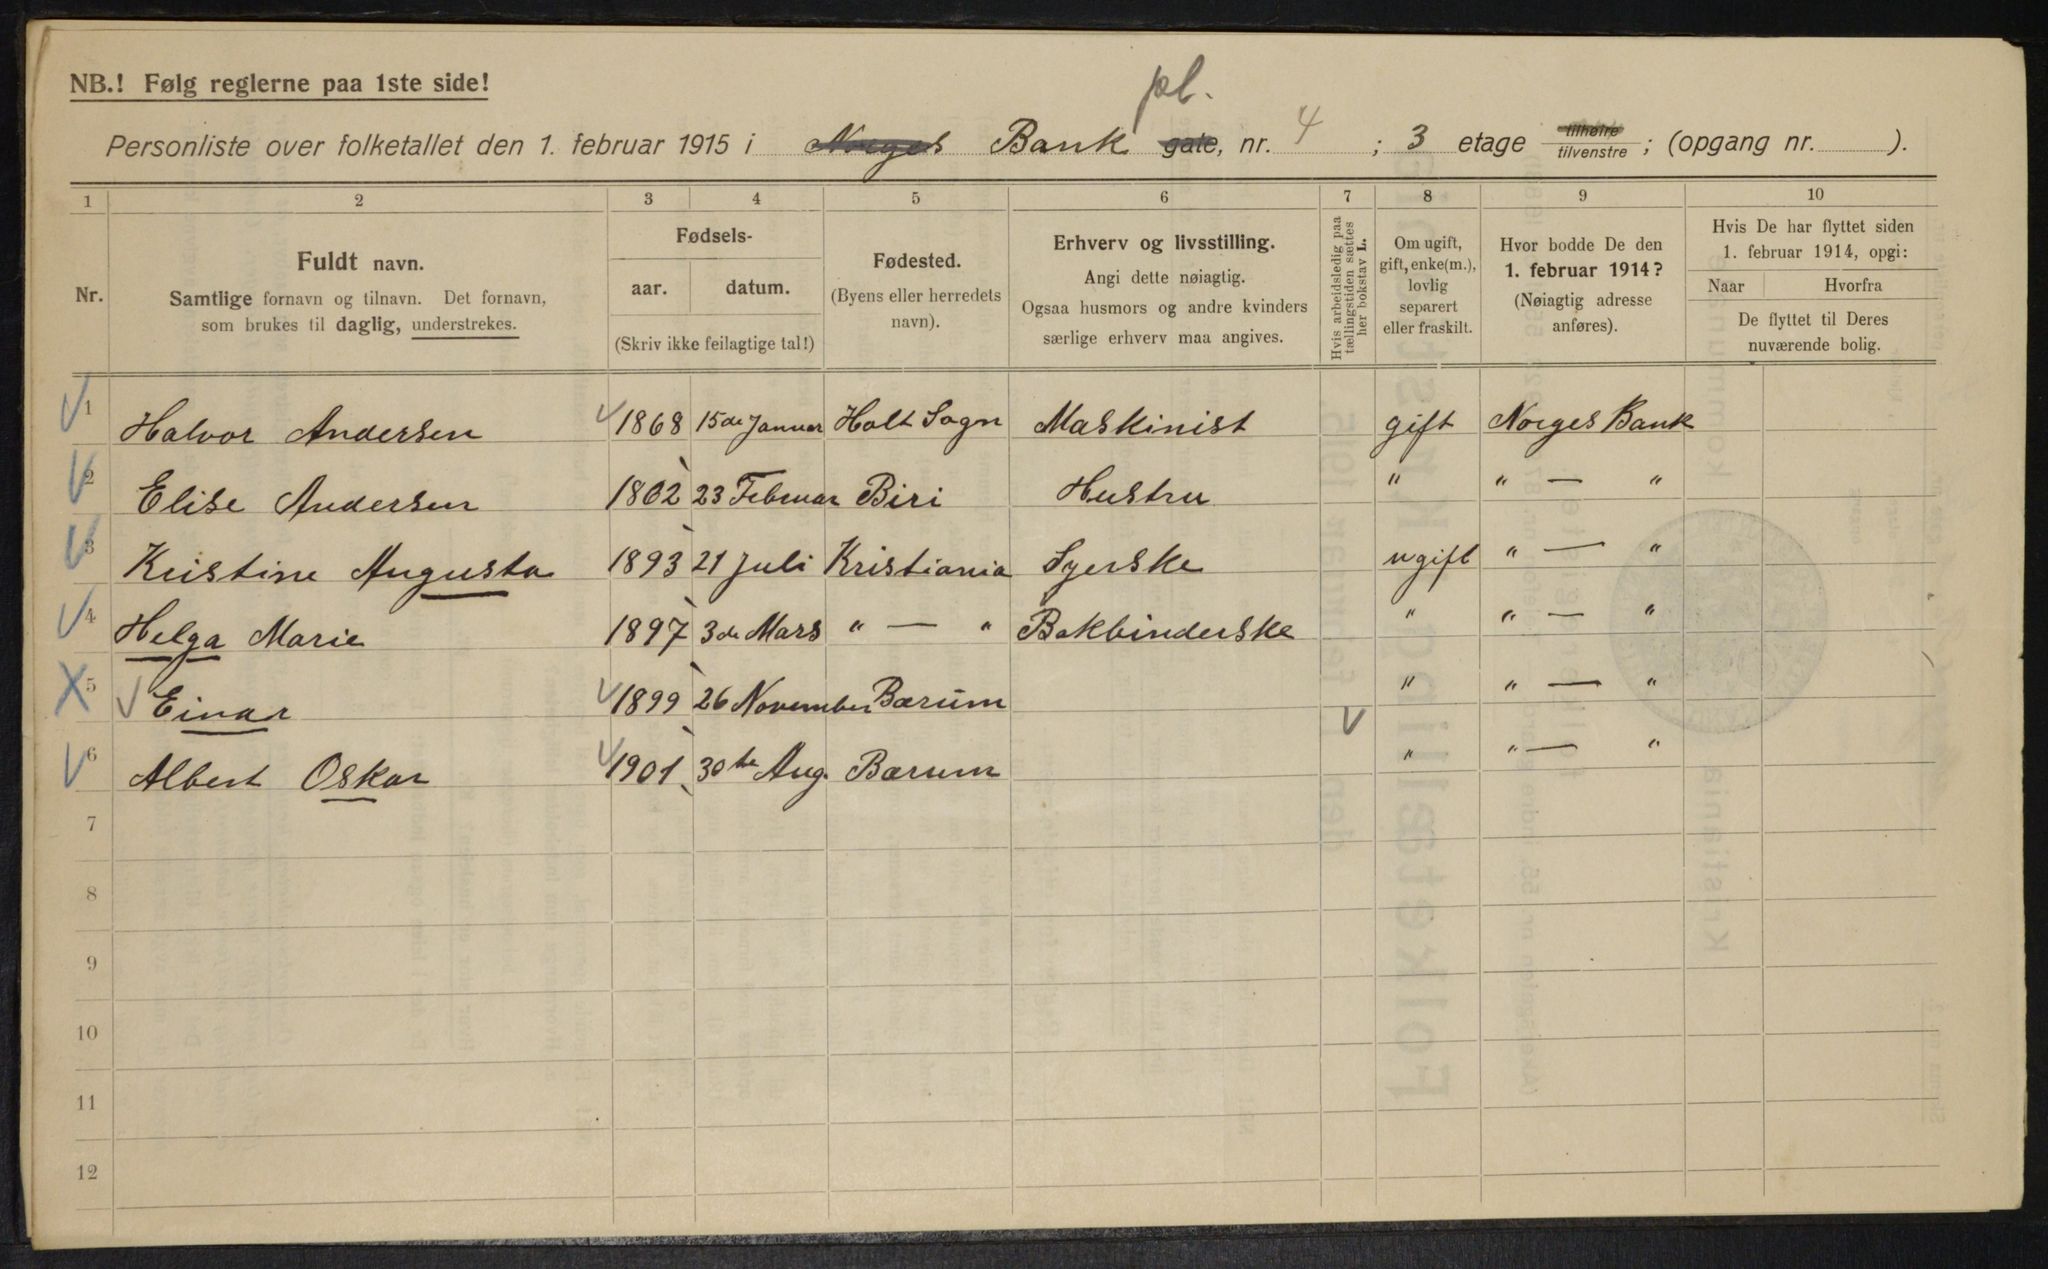 NB.! Følg reglerne paa 1ste side!
pl.
Personliste over folketallet den 1. februar 1915 i Norges Bank gate, nr. 4 ; 3 etage tilhøire tilvenstre ; (opgang nr. ).
1 2 3 4 5 6 7 8 9 10
Nr.
Fuldt navn.
Samtlige fornavn og tilnavn. Det fornavn,
som brukes til daglig, understrekes.
Fødsels-
aar. datum.
(Skriv ikke feilagtige tal!)
Fødested.
(Byens eller herredets
navn).
Erhverv og livsstilling.
Angi dette nøiagtig.
Ogsaa husmors og andre kvinders
særlige erhverv maa angives.
Hvis arbeidsledig paa
tællingstiden sættes
her bokstav L.
Om ugift,
gift, enke(m.),
lovlig
separert
eller fraskilt.
Hvor bodde De den
1. februar 1914?
(Nøiagtig adresse
anføres).
Hvis De har flyttet siden
1. februar 1914, opgi:
Naar Hvorfra
De flyttet til Deres
nuværende bolig.
1 Halvor Andersen 1868 15de Januar Holt Sogn Maskinist gift Norges Bank
2 Elise Andersen 1862 23 Februar Biri Hustru " " — "
3 Kristine Augusta 1893 21 Juli Kristiania Syerske ugift " — "
4 Helga Marie 1897 3de Mars " — " Bokbinderske " " — "
5 Einar 1899 26 November Bærum " " — "
6 Albert Oskar 1901 30te Aug. Bærum " " — "
7
8
9
10
11
12